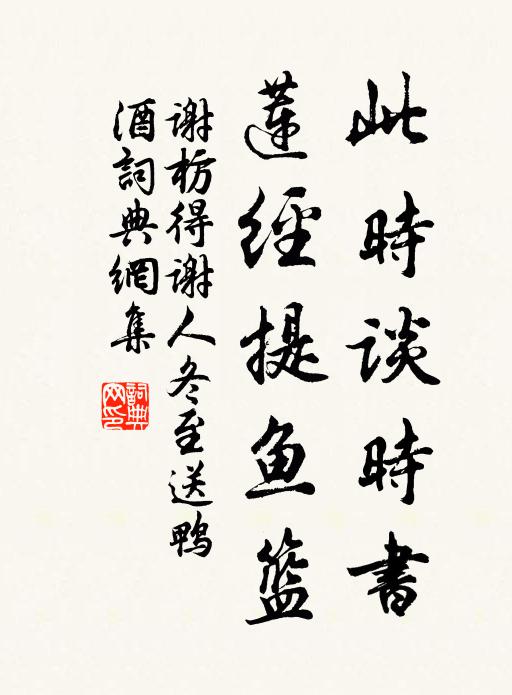 此時談時書
蓮經提魚籃
謝枋得謝人冬至送鴨
酒詞典網集
詞典網印